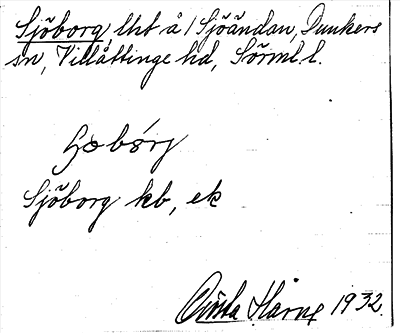 Sjöborg, lht å 1 Sjöändan, Dunkers
sn, Villåttinge hd, Sörml. l.
Sjöborg kb, ek
1932.